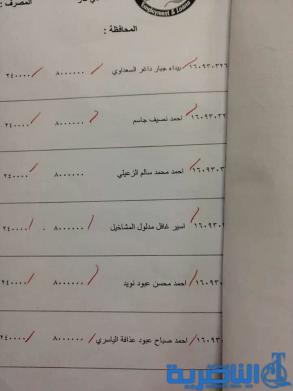 Employment & Loans
المصرف :
المحافظة :
١٦٠٩٣٠٣٢٦ بيداء جبار داغر السعداوي ٨٠٠٠٠٠٠ ٢٤٠٠٠٠
احمد نصيف جاسم ٨٠٠٠٠٠٠ ٢٤٠٠٠٠
احمد محمد سالم الزعيلي ٨٠٠٠٠٠٠ ٢٤٠٠٠٠
اسير غافل مدلول المشاخيل ٨٠٠٠٠٠٠ ٢٤٠٠٠٠
احمد محسن عبود نويد ٨٠٠٠٠٠٠ ٢٤٠٠٠٠
احمد صباح عبود عذافة الياسري ٨٠٠٠٠٠٠ ٢٤٠٠٠٠
الناصرية